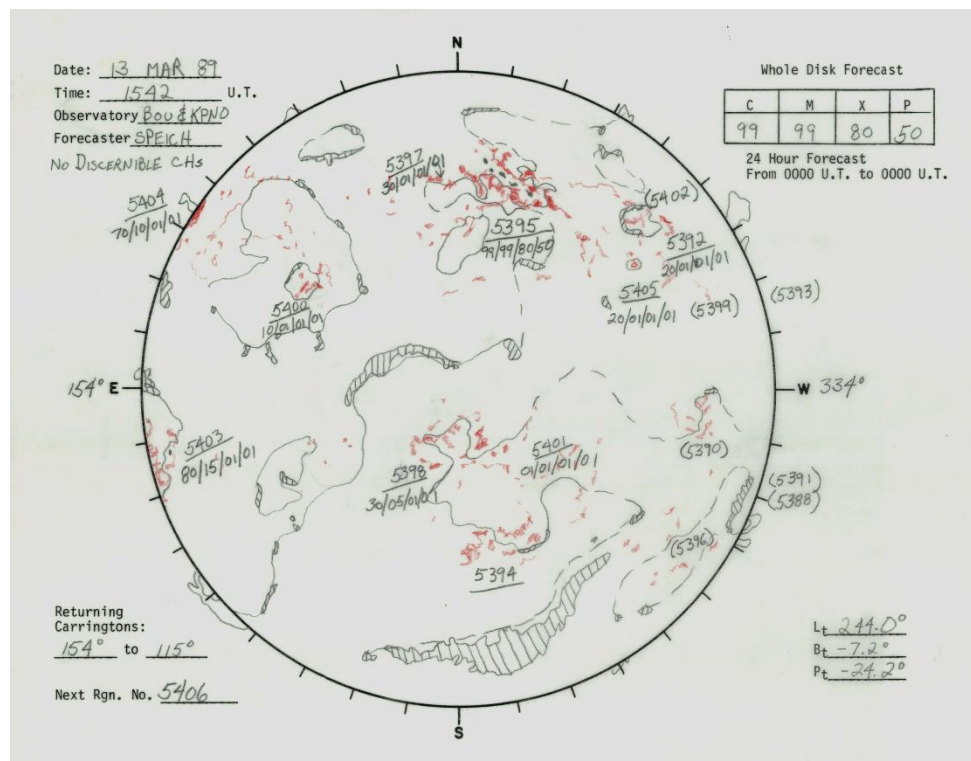 N
Date: 13 MAR 89
Time: 1542 U.T.
Observatory BOU & KPNO
Forecaster SPEICH
NO DISCERNIBLE CHs
Whole Disk Forecast
C M X P
99 99 80 50
24 Hour Forecast
From 0000 U.T. to 0000 U.T.
5397
30/01/01/01
5404
70/10/01/01
(5402)
5395
99/99/80/50
5392
20/01/01/01
5405
20/01/01/01
(5399)
(5393)
5400
10/01/01/01
154° E
W 334°
5403
80/15/01/01
5401
01/01/01/01
(5390)
5398
30/05/01/01
(5391)
(5388)
(5396)
5394
Returning
Carringtons:
154° to 115°
Next Rgn. No. 5406
Lt 244.0°
Bt -7.2°
Pt -24.2°
S